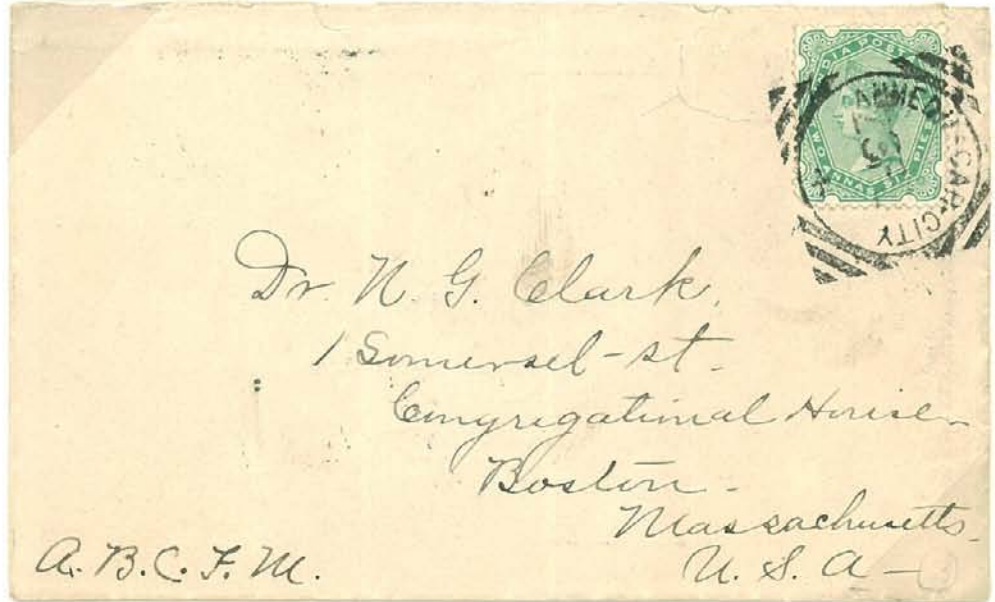 INDIA POSTAGE
TWO ANNAS SIX PIES
CITY
Dr. N. G. Clark,
1 Somerset-st.
Congregational House
Boston-
Massachusetts.
U. S. A-
A. B. C. F. M.